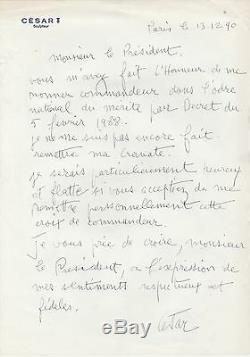 CÉSAR
Sculpteur
Paris le 13.12.90
Monsieur le Président.
vous m'avez fait l'Honneur de me
nommer commandeur dans l'odre
national du mérite par Decret du
5 février 1988.
je ne me suis pas encore fait
remettre ma cravate.
je serais particulièrement heureux
et flatté si vous acceptiez de me
remettre personnellement cette
croix de commandeur.
je vous prie de croire, monsieur
le Président, a l'expression de
mes sentiments respectueux et
fidèles.
César